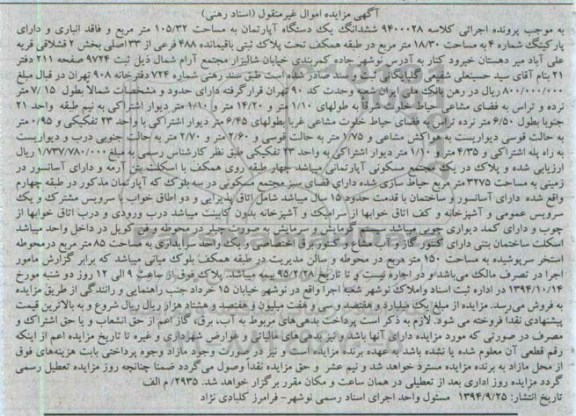 آگهی مزایده اموال غیرمنقول (اسناد رهنی)
به موجب پرونده اجرائی کلاسه ۹۴۰۰۰۲۸ ششدانگ یک دستگاه آپارتمان به مساحت ۱۰۵/۳۲ متر مربع و فاقد انباری و دارای
پارکینگ شماره ۴ به مساحت ۱۸/۳۰ متر مربع در طبقه همکف تحت پلاک ثبتی باقیمانده ۴۸۸ فرعی از ۳۳ اصلی بخش ۲ قشلاقی قریه
علی آباد میر دهستان خیرود کنار به آدرس نوشهر جاده کمربندی خیابان شالیزار مجتمع آرام شمال ذیل ثبت ۹۷۲۴ صفحه ۲۱۱ دفتر
۲۱ بنام آقای سید حسینعلی شفیعی گلپایگان ثبت و سند صادر شده است طبق سند رهنی شماره ۷۲۴ دفترخانه ۹۰۸ تهران در قبال مبلغ
۸۰۰/۰۰۰/۰۰۰ ریال در رهن بانک ملی ایران شعبه وحدت کد ۹۰ تهران قرار گرفته دارای حدود و مشخصات شمالاً بطول ۷/۱۵ متر
نرده و تراس به فضای مشاعی حیاط خلوت شرقا به طولهای ۱/۱۰ متر و ۱۴/۲۰ متر و ۱/۱۰ متر دیوار اشتراکی به نیم طبقه واحد ۲۱
جنوبا بطول ۶/۵۰ متر نرده تراس به فضای حیاط خلوت مشاعی غربا بطولهای ۶/۴۵ متر دیوار اشتراکی با واحد ۲۳ تفکیکی و ۰/۹۵ متر
به حالت قوسی دیواریست به هواکش مشاعی و ۱/۷۵ متر به حالت قوسی و ۲/۶۰ متر و ۲/۷۰ متر به حالت جنوبی درب و دیواریست
به راه پله اشتراکی و ۴/۳۵ متر و ۱/۱۰ متر دیوار اشتراکی به واحد ۲۳ تفکیکی طبق نظر کارشناس رسمی به مبلغ ۱/۷۳۷/۷۸۰/۰۰۰ ریال
ارزیابی شده و پلاک در یک مجتمع مسکونی آپارتمانی میباشد چهار طبقه روی همکف با اسکلت بتن آرمه و دارای آسانسور در
زمینی به مساحت ۳۲۷۵ متر مربع حیاط سازی شده دارای فضای سبز مجتمع مسکونی در سه بلوک که آپارتمان مذکور در طبقه چهارم
واقع شده دارای آسانسور و ساختمان با قدمت حدود ۱۵ سال میباشد شامل اتاق پذیرایی و دو اطاق خواب با سرویس مشترک و یک
سرویس عمومی و آشپزخانه و کف اتاق خوابها از سرامیک و آشپزخانه بدون کابینت میباشد درب ورودی و درب اتاق خوابها از
چوب و دارای کمد دیواری چوبی میباشد سیستم گرمایش و سرمایش به صورت چیلر و محوطه و فن کویل در داخل واحد میباشد
اسکلت ساختمان بتنی دارای کنتور گاز و آب مشاع و کنتور برق اختصاصی و یک واحد سرایداری به مساحت ۸۵ متر مربع درمحوطه
استخر سرپوشیده به مساحت ۱۵۰ متر مربع در محوطه و سالن مدیریت در طبقه همکف بلوک میانی میباشد که برابر گزارش مامور
اجرا در تصرف مالک می‌باشد و در اجاره نیست و تا تاریخ ۹۵/۲/۲۸ بیمه میباشد. پلاک فوق از ساعت ۹ الی ۱۲ روز دو شنبه مورخ
۱۳۹۴/۱۰/۱۴ در اداره ثبت اسناد واملاک نوشهر شعبه اجرا واقع در نوشهر خیابان ۱۵ خرداد جنب راهنمایی و رانندگی از طریق مزایده
به فروش می‌رسد. مزایده از مبلغ یک میلیارد و هفتصد و سی و هفت میلیون و هفتصد و هشتاد هزار ریال ریال شروع و به بالاترین قیمت
پیشنهادی نقداً فروخته می شود. لازم به ذکر است پرداخت بدهی‌های مربوط به آب، برق، گاز اعم از حق انشعاب و یا حق اشتراک و
مصرف در صورتی که مورد مزایده دارای آنها باشد و نیز بدهی های مالیاتی و عوارض شهرداری و غیره تا تاریخ مزایده اعم از اینکه
رقم قطعی آن معلوم شده یا نشده باشد به عهده برنده مزایده است و نیز در صورت وجود مازاد وجوه پرداختی بابت هزینه‌های فوق
از محل مازاد به برنده مزایده مسترد خواهد شد و نیم عشر و حق مزایده نقداً وصول می‌گردد ضمنا چنانچه روز مزایده تعطیل رسمی
گردد مزایده روز اداری بعد از تعطیلی در همان ساعت و مکان مقرر برگزار خواهد شد. ۲۹۳۵/ م الف
تاریخ انتشار: ۱۳۹۴/۹/۲۵ مسئول واحد اجرای اسناد رسمی نوشهر- فرامرز کلبادی نژاد